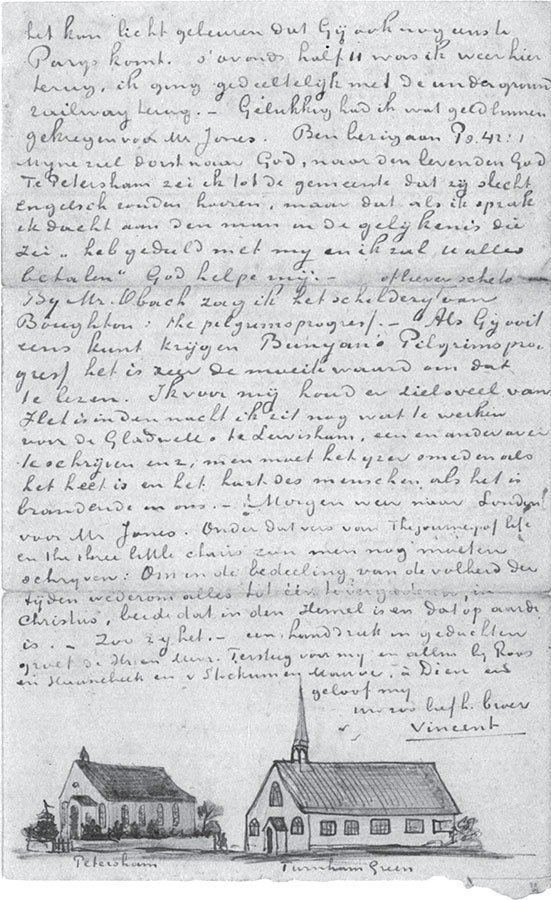 het kan licht gebeuren dat Gij ook nog eens te
Parys komt. s'avonds half 11 was ik weer hier
terug, ik ging gedeeltelijk met de underground
railway terug. — Gelukkig had ik wat geld kunnen
gekregen voor Mr Jones. Ben bezig aan Ps. 42:1
Myne ziel dorst naar God, naar den levenden God
Te Petersham zei ik tot de gemeente dat zij slecht
Engelsch zouden hooren, maar dat als ik sprak
ik dacht aan den man in de gelijkenis die
zei „heb geduld met my en ik zal U alles
betalen" God helpe mij. —
By Mr. Obach zag ik het schildery van
Boughton: the pilgrimsprogress. — Als Gij ooit
eens kunt krijgen Bunyan's Pilgrimspro-
gress het is zeer de moeite waard om dat
te lezen. Ik voor mij houd er zielsveel van
Het is in den nacht ik zit nog wat te werken
voor de Gladwells te Lewisham, een en ander over
te schrijven enz, men moet het yzer smeden als
het heet is en het hart des menschen als het is
brandende in ons. — Morgen weer naar London
voor Mr Jones. Onder dat vers van The journey of life
en the three little chairs zou men nog moeten
schryven: Om in de bedeeling van de volheid der
tijden wederom alles tot één te vergaderen, in
Christus, beide dat in den Hemel is en dat op aarde
is. — Zoo zy het. — een handdruk in gedachten
groet de Hr en Mevr. Tersteeg voor my en allen bij Roos
en Haanebeek en v Stockum en Mauve, à Dieu en
geloof my
uw zoo liefh. broer
Vincent
Petersham
Turnham Green